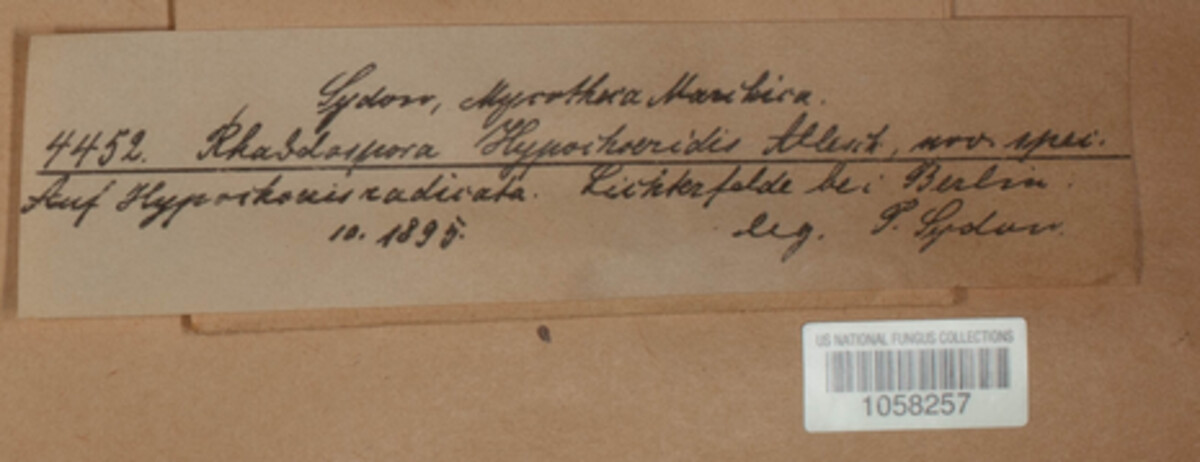 Sydow, Mycotheca Marchica.
4452. Rhabdospora Hypochoeridis Allesch., nov. spec.
Auf Hypochoeris radicata. Lichterfelde bei Berlin.
10. 1895. leg. P. Sydow.
US NATIONAL FUNGUS COLLECTIONS
1058257